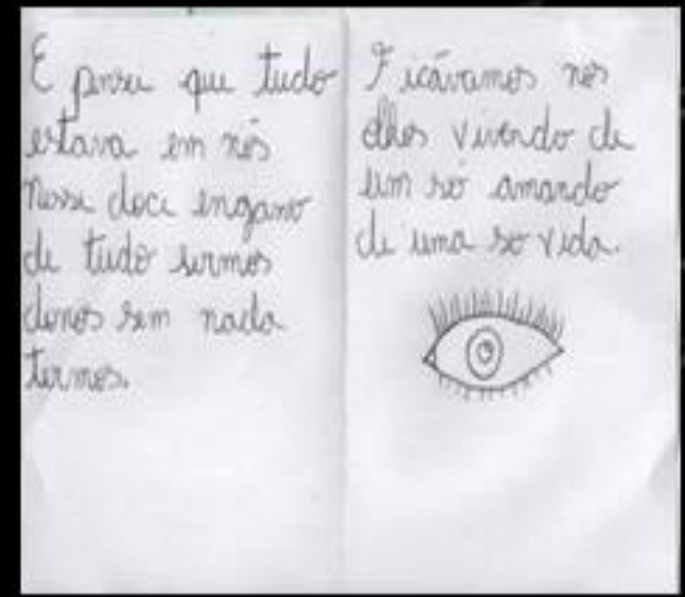 E pensei que tudo
estava em nós
Nesse doce engano
de tudo sermos
donos sem nada
termos.
Ficávamos nos
olhos vivendo de
um só amando
de uma so vida.